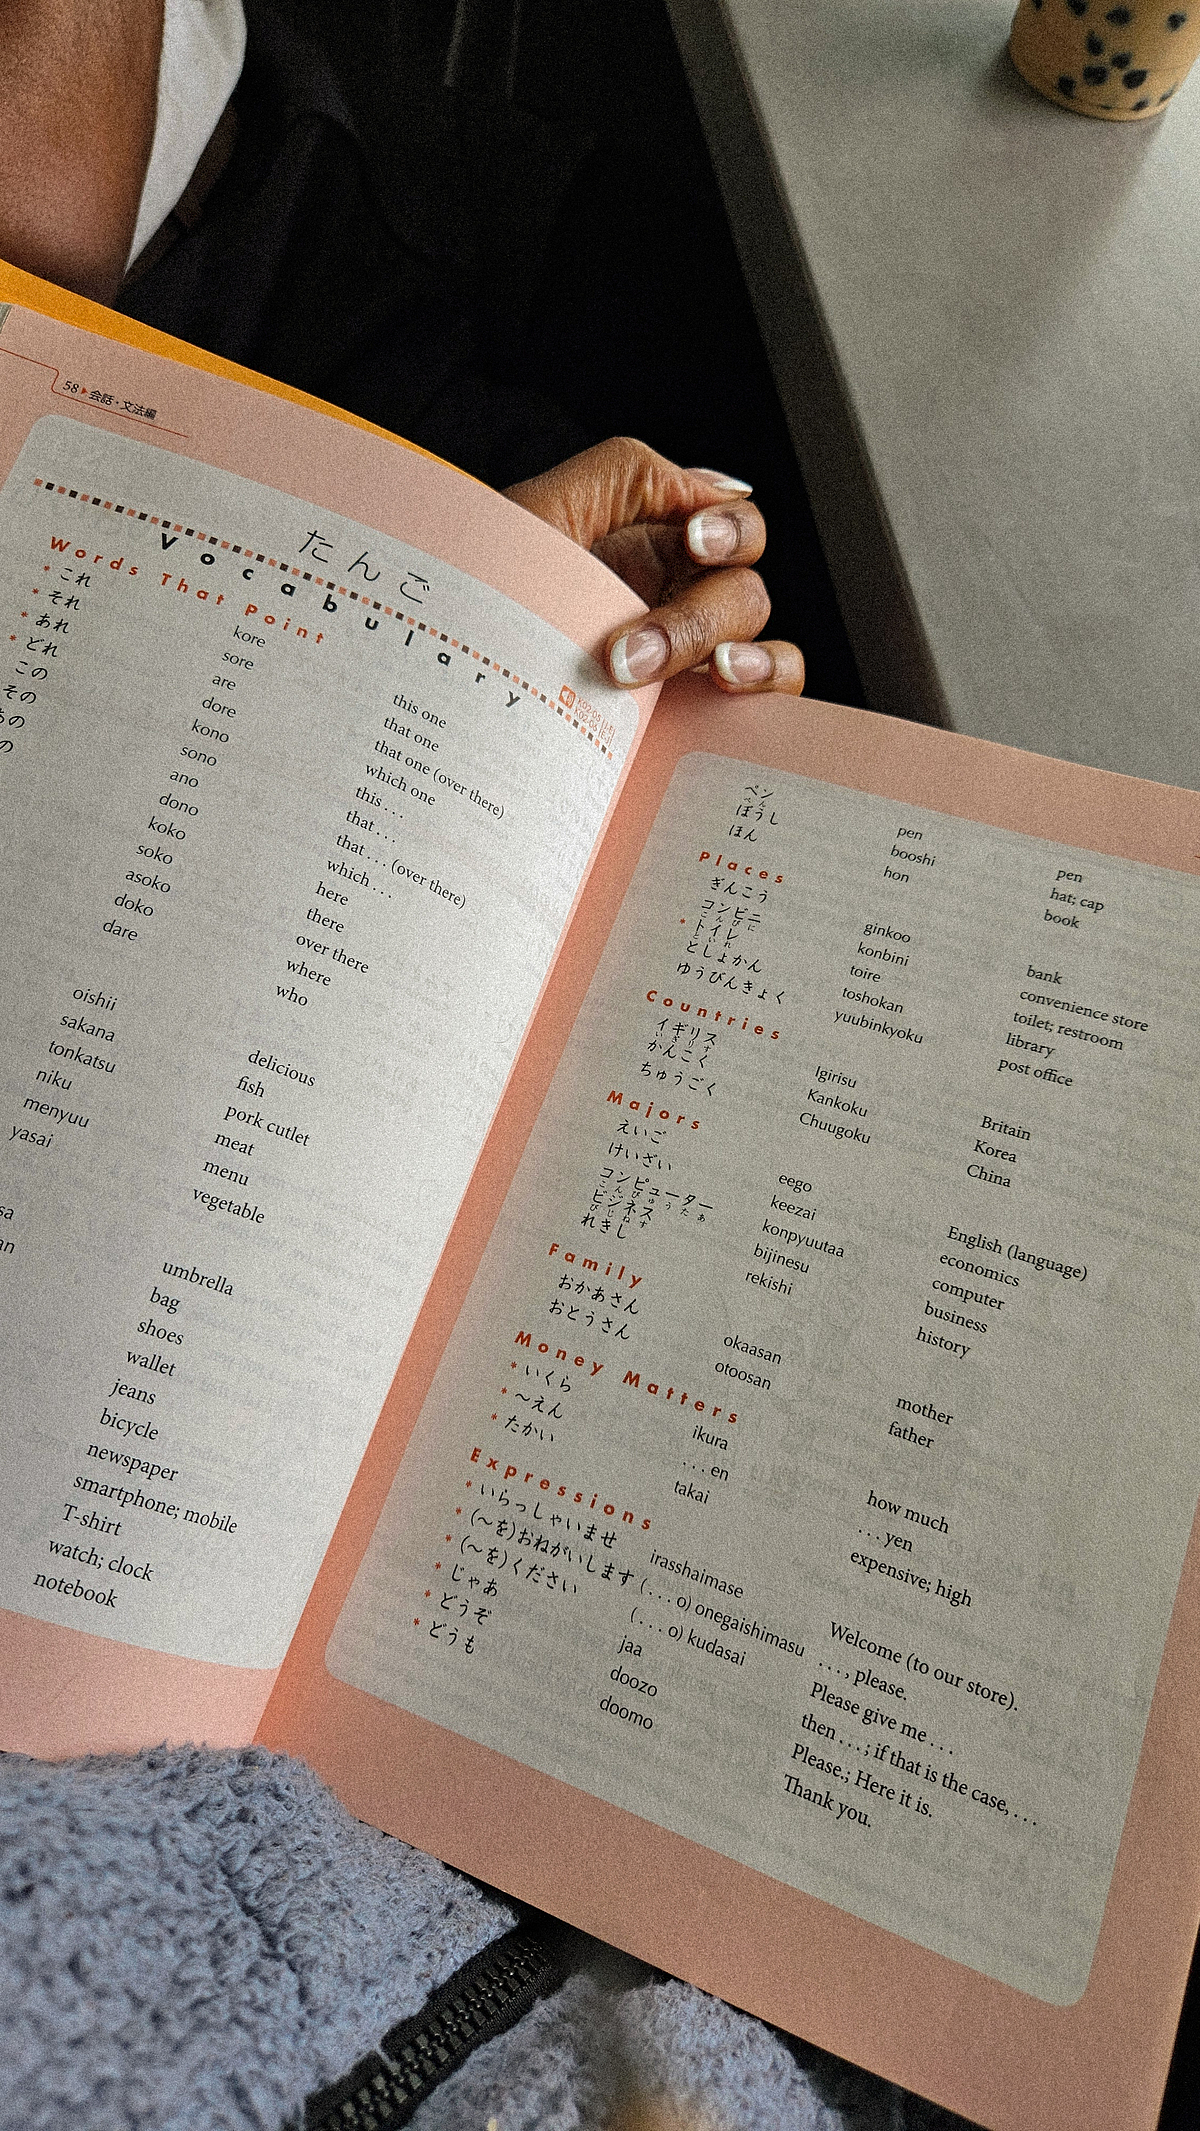 58 ▸ 会話・文法編
たんご
Vocabulary
K02-05 [J-E]
K02-06 [E-J]
Words That Point
* これ kore this one
* それ sore that one
* あれ are that one (over there)
* どれ dore which one
この kono this . . .
その sono that . . .
の ano that . . . (over there)
の dono which . . .
koko here
soko there
asoko over there
doko where
dare who
oishii delicious
sakana fish
tonkatsu pork cutlet
niku meat
menyuu menu
yasai vegetable
umbrella
bag
shoes
wallet
jeans
bicycle
newspaper
smartphone; mobile
T-shirt
watch; clock
notebook
ペン pen pen
ぼうし booshi hat; cap
ほん hon book
Places
ぎんこう ginkoo bank
コンビニ konbini convenience store
* トイレ toire toilet; restroom
としょかん toshokan library
ゆうびんきょく yuubinkyoku post office
Countries
イギリス Igirisu Britain
かんこく Kankoku Korea
ちゅうごく Chuugoku China
Majors
えいご eego English (language)
けいざい keezai economics
コンピューター konpyuutaa computer
ビジネス bijinesu business
れきし rekishi history
Family
おかあさん okaasan mother
おとうさん otoosan father
Money Matters
* いくら ikura how much
* ～えん . . . en . . . yen
* たかい takai expensive; high
Expressions
* いらっしゃいませ irasshaimase Welcome (to our store).
* (～を)おねがいします (. . . o) onegaishimasu . . . , please.
* (～を)ください (. . . o) kudasai Please give me . . .
* じゃあ jaa then . . . ; if that is the case, . . .
* どうぞ doozo Please.; Here it is.
* どうも doomo Thank you.